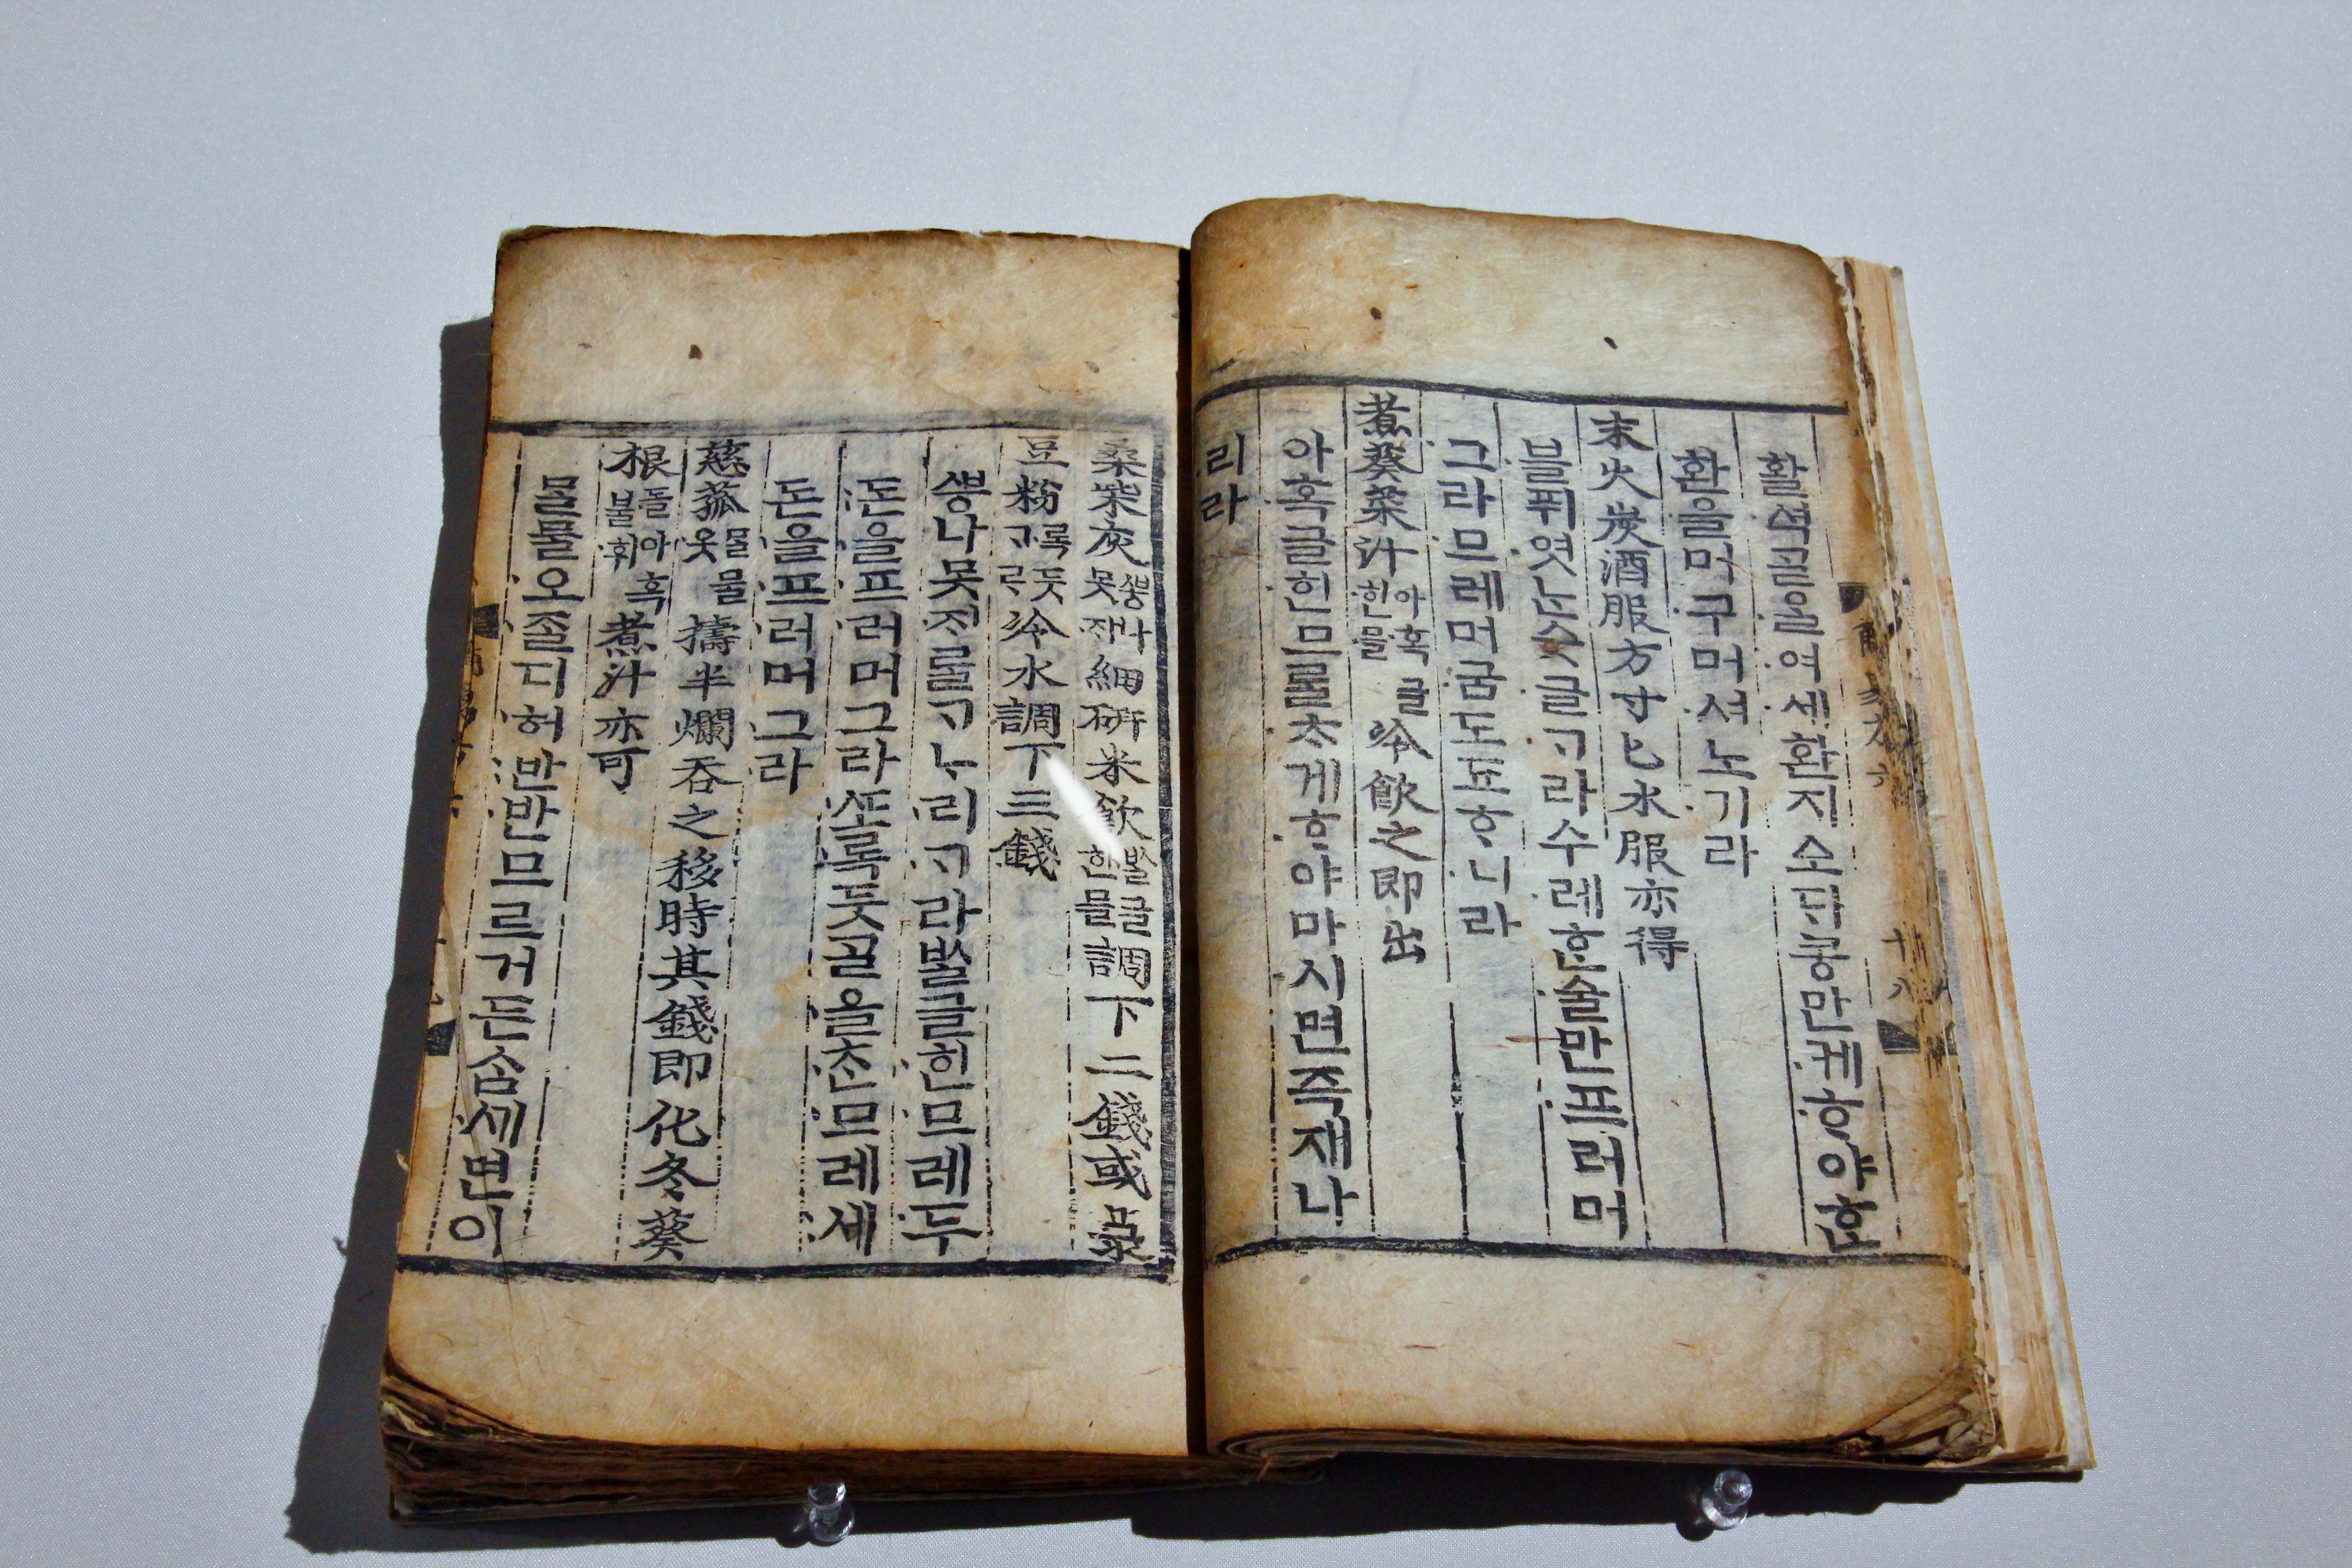 활셕ᄀᆞᆯ올여세환지소ᄃᆡ콩만케ᄒᆞ야ᄒᆞᆫ
환을머구머셔노기라
末火炭酒服方寸匕水服亦得
블퓌엿ᄂᆞᆫ숫글ᄀᆞ라수레ᄒᆞᆫ술만프러머
그라므레머굼도됴ᄒᆞ니라
煮葵菜汁아혹글힌믈冷飮之即出
아혹글힌므를ᄎᆞ게ᄒᆞ야마시면즉재나
리라
桑柴灰ᄲᅩᆼ나못ᄌᆡ細硏米飮ᄡᆞᆯ글힌믈調下二錢或菉
豆粉록듯ᄀᆞᄅᆞ冷水調下三錢
ᄲᅩᆼ나못ᄌᆡ를ᄀᆞᄂᆞ리ᄀᆞ라ᄡᆞᆯ글힌므레두
돈을프러머그라ᄯᅩ록둣ᄀᆞᆯ을ᄎᆞᆫ므레세
돈을프러머그라
慈菰믈물옷擣半爛呑之移時其錢即化冬葵
根돌아혹불휘煮汁亦可
믈물오졸디허반반므르거든ᄉᆞᆷ세면이